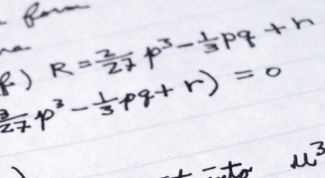 form
R = 2/27 p³ - 1/3 pq + r
/27 p³ - 1/3 pq + r) = 0
into u³